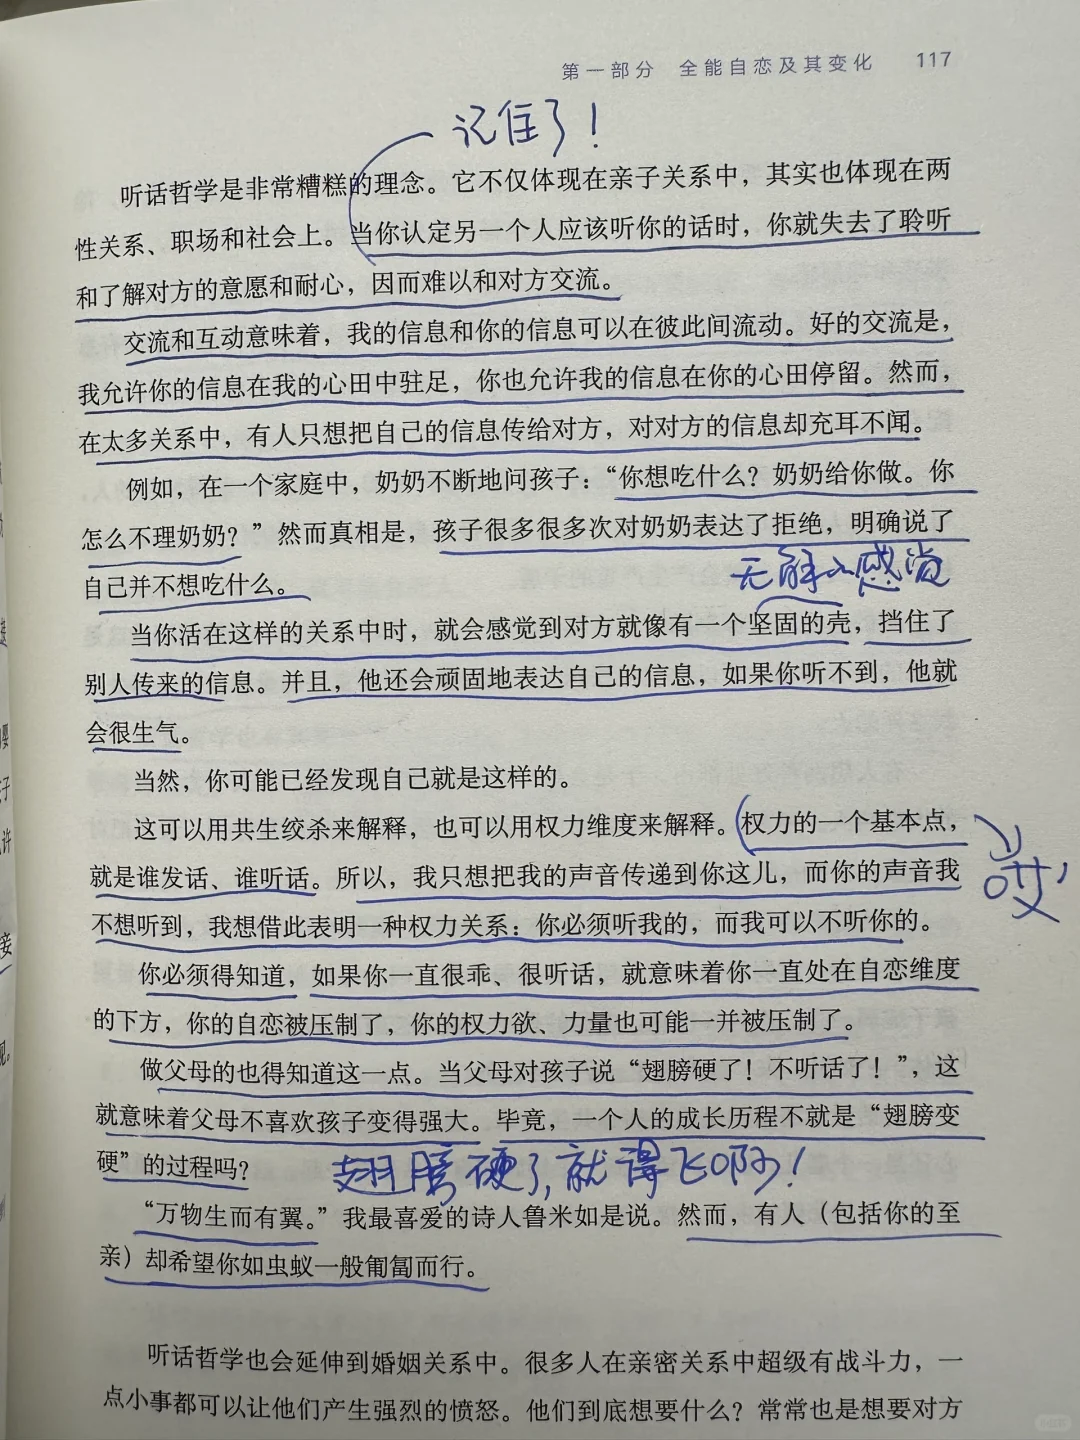 第一部分 全能自恋及其变化 117
记住了！
听话哲学是非常糟糕的理念。它不仅体现在亲子关系中，其实也体现在两
性关系、职场和社会上。当你认定另一个人应该听你的话时，你就失去了聆听
和了解对方的意愿和耐心，因而难以和对方交流。
交流和互动意味着，我的信息和你的信息可以在彼此间流动。好的交流是，
我允许你的信息在我的心田中驻足，你也允许我的信息在你的心田停留。然而，
在太多关系中，有人只想把自己的信息传给对方，对对方的信息却充耳不闻。
例如，在一个家庭中，奶奶不断地问孩子：“你想吃什么？奶奶给你做。你
怎么不理奶奶？”然而真相是，孩子很多很多次对奶奶表达了拒绝，明确说了
自己并不想吃什么。
无解的感觉
当你活在这样的关系中时，就会感觉到对方就像有一个坚固的壳，挡住了
别人传来的信息。并且，他还会顽固地表达自己的信息，如果你听不到，他就
会很生气。
当然，你可能已经发现自己就是这样的。
这可以用共生绞杀来解释，也可以用权力维度来解释。权力的一个基本点，
就是谁发话、谁听话。所以，我只想把我的声音传递到你这儿，而你的声音我
哎
不想听到，我想借此表明一种权力关系：你必须听我的，而我可以不听你的。
你必须得知道，如果你一直很乖、很听话，就意味着你一直处在自恋维度
的下方，你的自恋被压制了，你的权力欲、力量也可能一并被压制了。
做父母的也得知道这一点。当父母对孩子说“翅膀硬了！不听话了！”，这
就意味着父母不喜欢孩子变得强大。毕竟，一个人的成长历程不就是“翅膀变
硬”的过程吗？
翅膀硬了，就得飞啊！
“万物生而有翼。”我最喜爱的诗人鲁米如是说。然而，有人（包括你的至
亲）却希望你如虫蚁一般匍匐而行。
听话哲学也会延伸到婚姻关系中。很多人在亲密关系中超级有战斗力，一
点小事都可以让他们产生强烈的愤怒。他们到底想要什么？常常也是想要对方